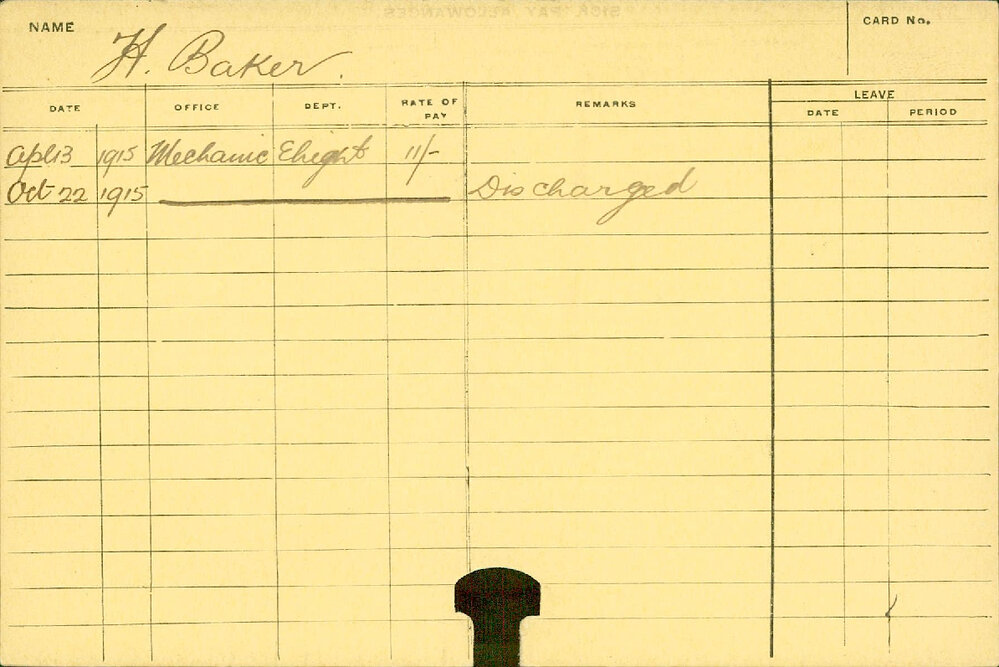 NAME H. Baker. CARD No.
DATE OFFICE DEPT. RATE OF PAY REMARKS LEAVE
DATE PERIOD
Apl 13 1915 Mechanic Eleght 11/-
Oct 22 1915 Discharged